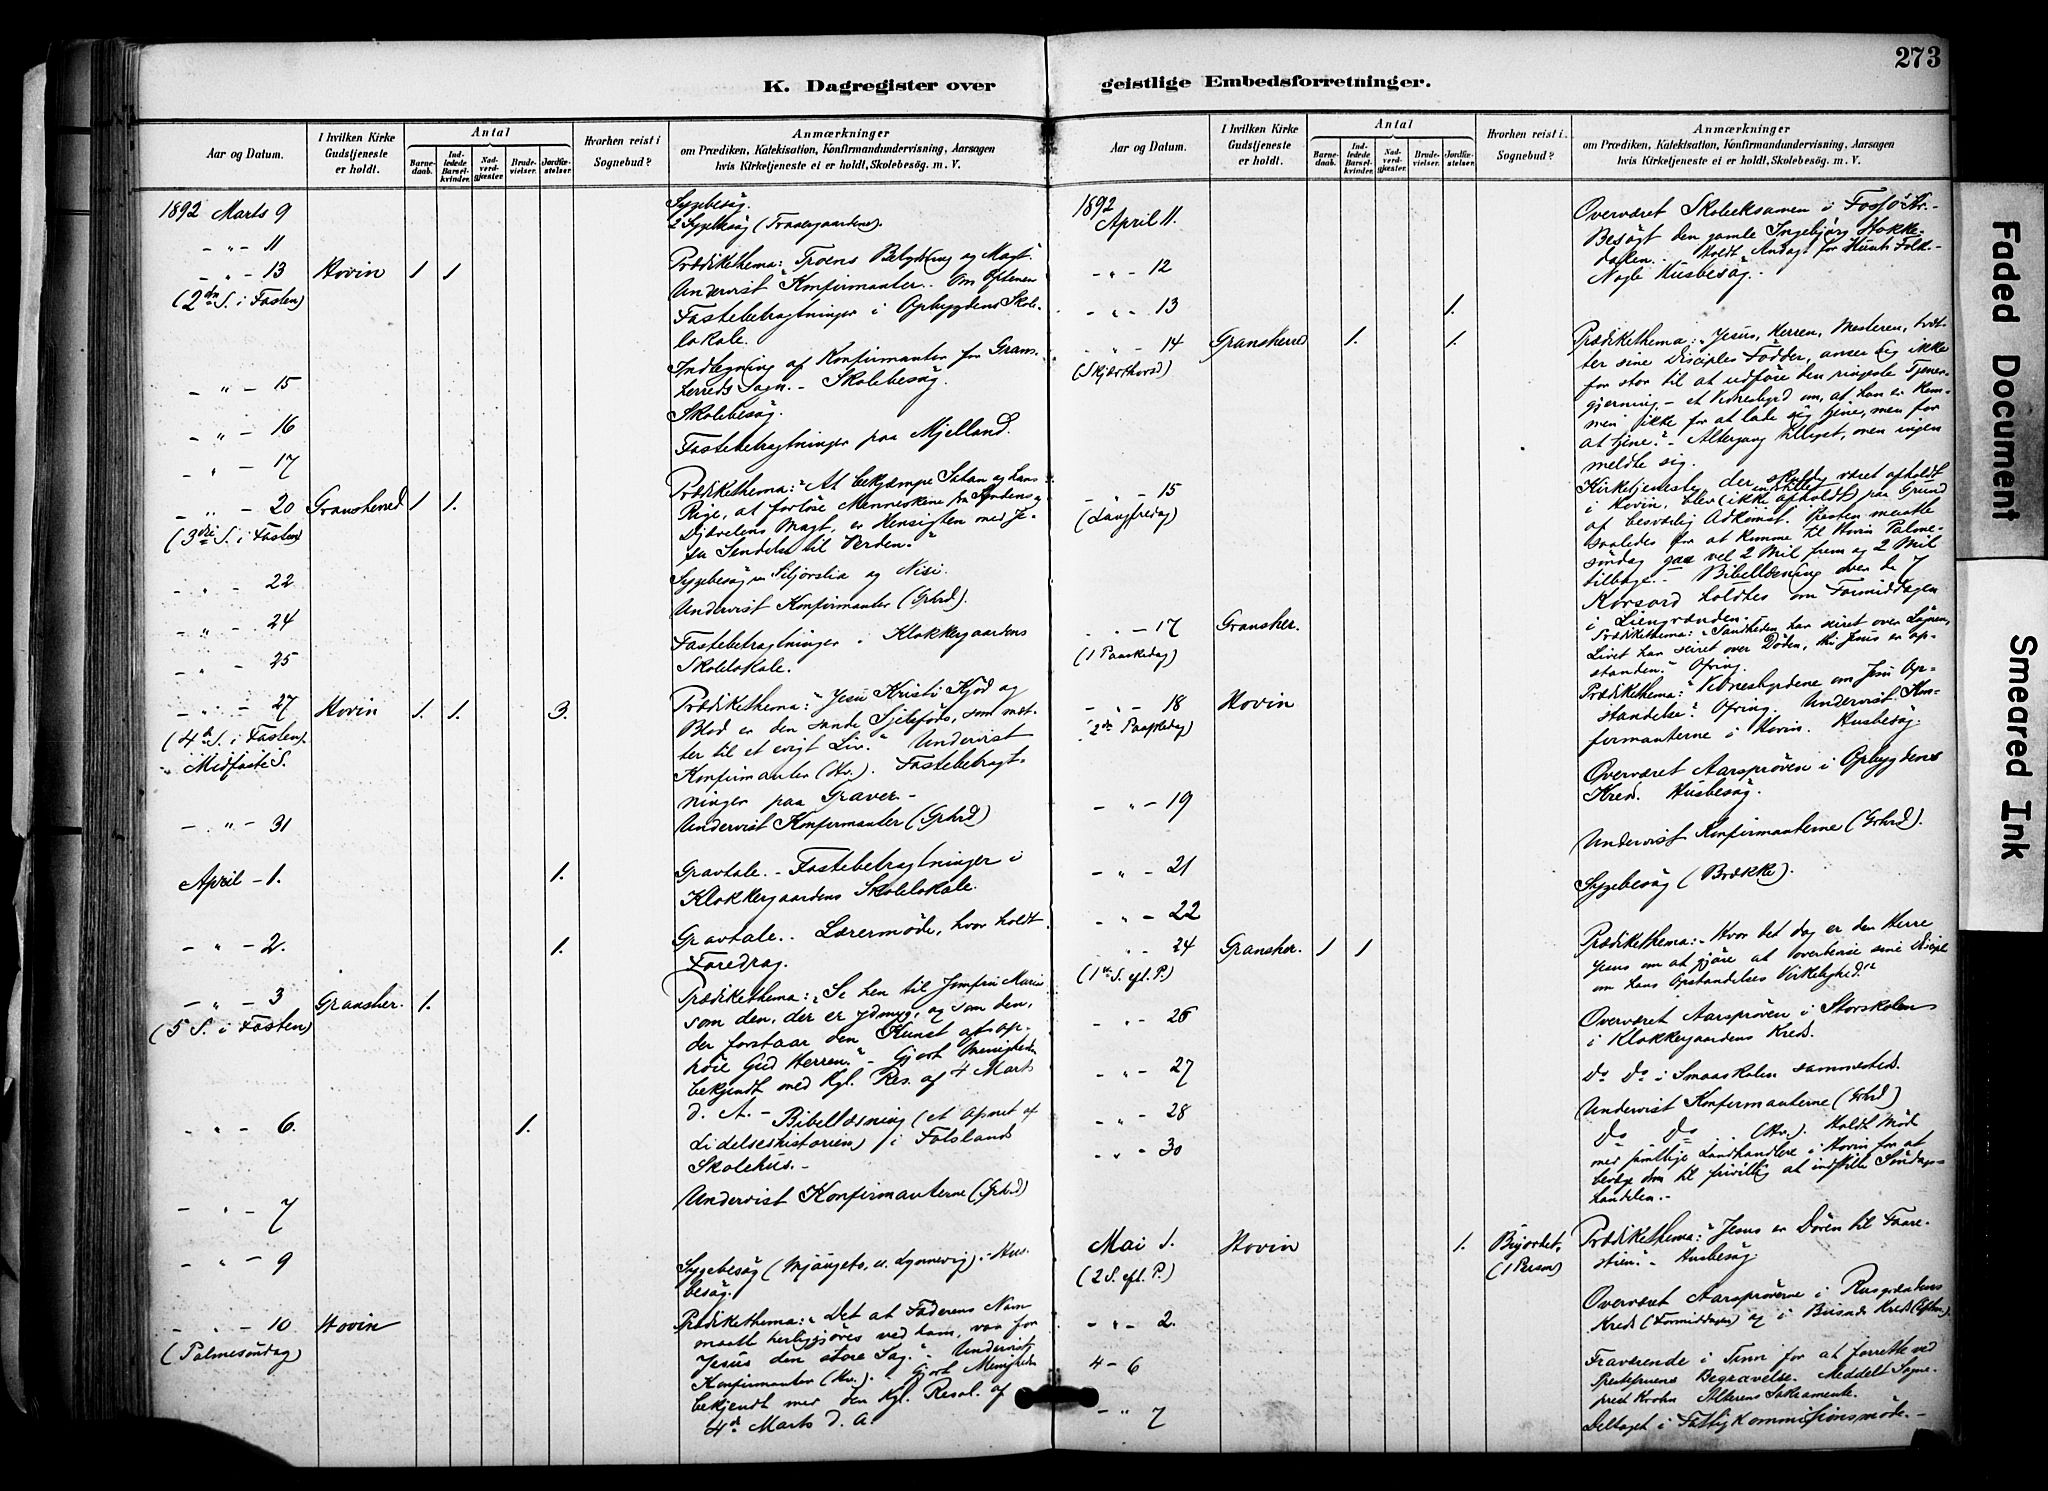 273
K. Dagregister over geistlige Embedsforretninger.
Aar og Datum.
I hvilken Kirke Gudstjeneste er holdt.
Antal
Barnedaab.
Indledede Barselkvinder.
Nadverdgjæster.
Brudevielser.
Jordfæstelser.
Hvorhen reist i Sognebud?
Anmærkninger
om Prædiken, Katekisation, Konfirmandundervisning, Aarsagen
hvis Kirketjeneste ei er holdt, Skolebesög. m. V.
1892 Marts 9
Sygebesög.
- " - 11
2 Sygebesög
- " - 13 Hovin 1 1
(2den S. i Fasten)
Prædikethema: Troens Betydning og Magt.
Undervist Konfirmanter. Om Aftenen
Fastebetragtninger i Opbygdens Skole-
lokale.
- " - 15
Indtegning af Konfirmanter for Grans-
herreds Sogn. - Skolebesög.
- " - 16
Skolebesög.
- " - 17
Fastebetragtninger paa Mjelland.
- " - 20 Gransherred 1 1.
(3die S. i Fasten)
Prædikethema: "At bekjæmpe Satan og hans
Rige, at forløse Menneskene fra Syndens og
Djævelens Magt, er Hensigten med Je-
su Sendelse til Verden."
- " - 22
Sygebesög
- " - 24
Undervist Konfirmanter (Grhrd).
- " - 25
Fastebetragtninger i Klokkergaardens
Skolelokale.
- " - 27 Hovin 1. 1. 3.
(4de S. i Fasten).
" Midfaste S.
Prædikethema: "Jesu Kristi Kjød og
Blod er den sande Sjeleføde, som mæt-
ter til et evigt Liv." Undervist
Konfirmanter (Hv.). Fastebetragt-
ninger paa Graver -
- " - 31
Undervist Konfirmanter (Grhrd)
April - 1. 1.
Gravtale. - Fastebetragtninger i
Klokkergaardens Skolelokale.
- " - 2. 1.
Gravtale. Lærermøde, hvor holdt
Foredrag.
- " - 3 Gransher. 1.
(5 S. i Fasten)
Prædikethema: "Se hen til Jomfru Maria
som den, der er ydmyg, og som den,
der forstaar den Kunst at op-
høie Gud Herren." - Gjort Menigheden
bekjendt med Kgl. Res. af 4 Marts
d. A. -
- " - 6. 1.
Bibellæsning (et Afsnit af
Lidelseshistorien) i Folslands
Skolehus. -
- " - 7
Undervist Konfirmanterne (Grhrd)
- " - 9
Sygebesög - Hus-
besög.
- " - 10 Hovin
(Palmesöndag)
Prædikethema: "Det at Faderens Navn
maatte herliggjöres ved ham, var for
Jesus den store Sag." Undervist
Konfirmanter (Hv.). Gjort Menigheden
bekjendt med den Kgl. Resol. af
4de Marts d. A.
Aar og Datum.
I hvilken Kirke Gudstjeneste er holdt.
Antal
Barnedaab.
Indledede Barselkvinder.
Nadverdgjæster.
Brudevielser.
Jordfæstelser.
Hvorhen reist i Sognebud?
Anmærkninger
om Prædiken, Katekisation, Konfirmandundervisning, Aarsagen
hvis Kirketjeneste ei er holdt, Skolebesög. m. V.
1892
April 11.
Overværet Skoleeksamen i Fossö Kr. -
Besögt den gamle Ingebjörg Hakke-
dalen. - Holdt Andagt for Husets Folk -
- " - 12
Nogle Husbesög. -
- " - 13 1.
- " - 14 Gransherred 1. 1.
(Skjærthorsd)
Prædikethema: "Jesus, Herren, Mesteren, tvæt-
ter sine Disciples Fødder, anser sig ikke
for stor til at udføre den ringeste Tjener-
gjerning - et Vidnesbyrd om, at han er kom-
men ikke for at lade sig tjene, men for
at tjene." - Altergang tillyst, men ingen
meldte sig.
- " - 15
(Langfredag)
Kirketjeneste, der skulde været afholdt
i Hovin, blev (ikke afholdt) paa Grund
af besværlig Adkomst. Præsten maatte
saaledes for at komme til Hovin Palme-
söndag gaa vel 2 Mil frem og 2 Mil
tilbage. - Bibellæsning over de 7
Korsord holdtes om Formiddagen
i Liengrænden.
- " - 17 Gransher.
(1 Paaskedag)
Prædikethema: "Sandheden har seiret over Løgnen,
Livet har seiret over Døden, thi Jesus er op-
standen." Ofring.
- " - 18 Hovin
(2den Paaskedag)
Prædikethema: "Vidnesbyrdene om Jesu Op-
standelse." Ofring. Undervist Kon-
firmanterne i Hovin. Husbesög.
- " - 19
Overværet Aarspröven i Opbygdens
Kreds. Husbesög.
- " - 21
Undervist Konfirmanterne (Grhrd).
- " - 22
Sygebesög (Brække).
- " - 24 Gransher. 1 1
(1ste S. eft. P.)
Prædikethema: - Hvor det dog er den Herre
Jesus om at gjöre at overbevise sine Discipl
om hans Opstandelses Virkelighed."
- " - 26
Overværet Aarspröven i Storskolen
i Klokkergaardens Kreds.
- " - 27
Do Do i Smaaskolen sammesteds.
- " - 28
Undervist Konfirmanterne (Grhrd)
- " - 30
Do Do (Hv.). Holdt Möde
med samtlige Landhandlere i Hovin for at
bevæge dem til frivillig at indstille Söndags-
handelen. -
Mai 1. Hovin 1.
(2 S. eft. P.)
(1 Person)
Prædikethema: "Jesus er Dören til Faare-
stien." - Husbesög.
- " - 2.
Overværet Aarspröverne i Rusgrændens
Kreds (Formiddagen) og i Busnæs Kreds (Efterm.)
4 - 6
Fraværende i Tinn for at forrette ved
Begravelse. Meddelt Sogne-
præst Krohn Alterens Sakramente.
- " 7
Deltaget i Fattigkommissionsmöde. -
Faded Document
Smeared Ink